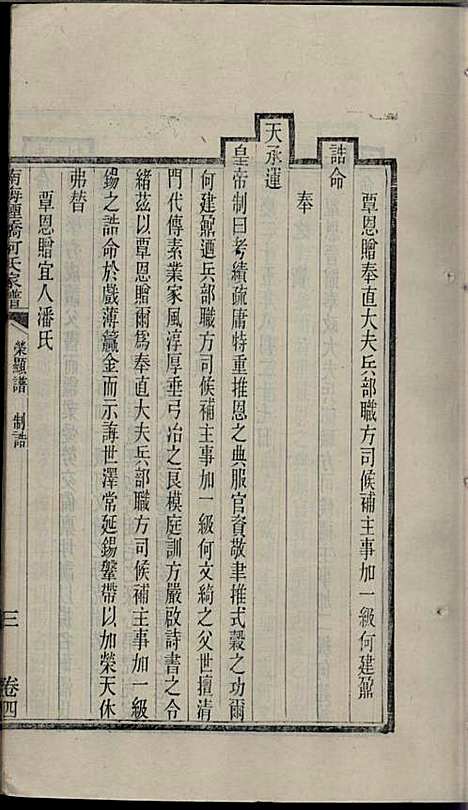 覃恩贈奉直大夫兵部職方司候補主事加一級何建鼐
誥命
奉
天承運
皇帝制曰考績疏庸特重推恩之典服官資敬聿推式穀之功爾
何建鼐迺兵部職方司候補主事加一級何文綺之父世擅清
門代傳素業家風淳厚垂弓冶之良模庭訓方嚴啟詩書之令
緒茲以覃恩贈爾爲奉直大夫兵部職方司候補主事加一級
錫之誥命於戲薄籝金而示誨世澤常延錫鞶帶以加榮天休
弗替
覃恩贈宜人潘氏
南海煙橋何氏家譜
榮顯譜 制誥
三
卷四